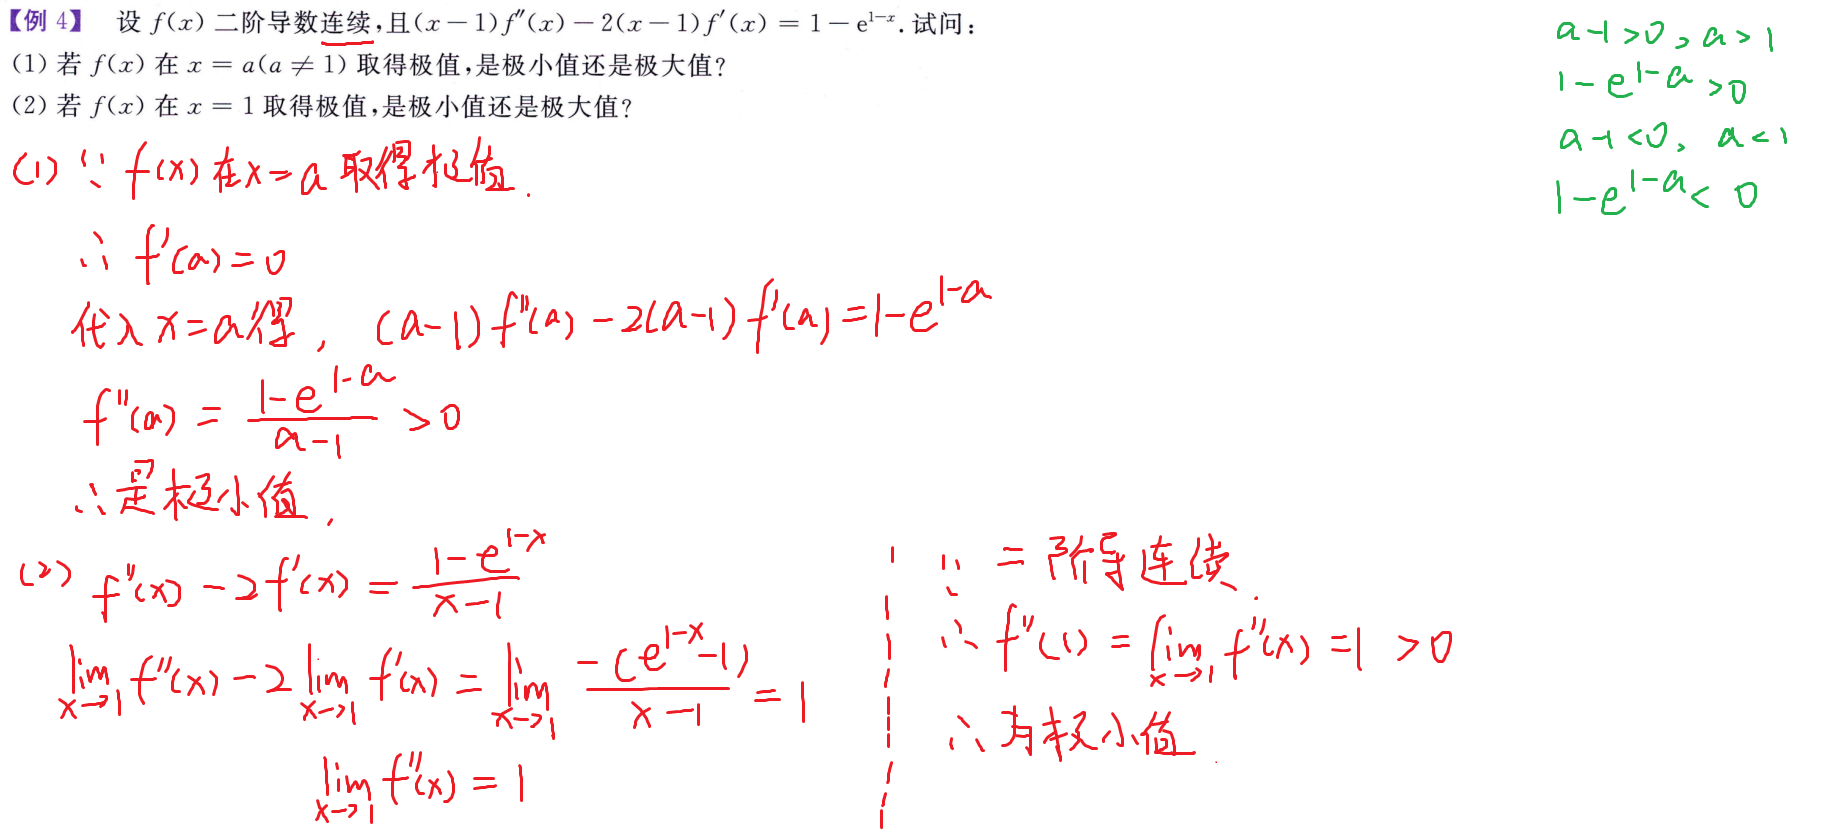 【例 4】 设 f(x) 二阶导数连续,且(x－1)f″(x)－2(x－1)f′(x)＝1－e^{1-x}.试问:
(1) 若 f(x) 在 x＝a(a≠1) 取得极值,是极小值还是极大值?
(2) 若 f(x) 在 x＝1 取得极值,是极小值还是极大值?
a-1>0, a>1
1-e^{1-a}>0
a-1<0, a<1
1-e^{1-a}<0
(1) ∵ f(x)在x=a取得极值.
∴ f′(a)=0
代入x=a得, (a-1)f″(a)-2(a-1)f′(a)=1-e^{1-a}
f″(a) = \frac{1-e^{1-a}}{a-1} >0
∴是极小值,
(2) f″(x)-2f′(x) = \frac{1-e^{1-x}}{x-1}
\lim_{x→1} f″(x)-2\lim_{x→1} f′(x) = \lim_{x→1} \frac{-(e^{1-x}-1)}{x-1} = 1
\lim_{x→1} f″(x) = 1
∵ 二阶导连续.
∴ f″(1) = \lim_{x→1} f″(x) =1 >0
∴为极小值.